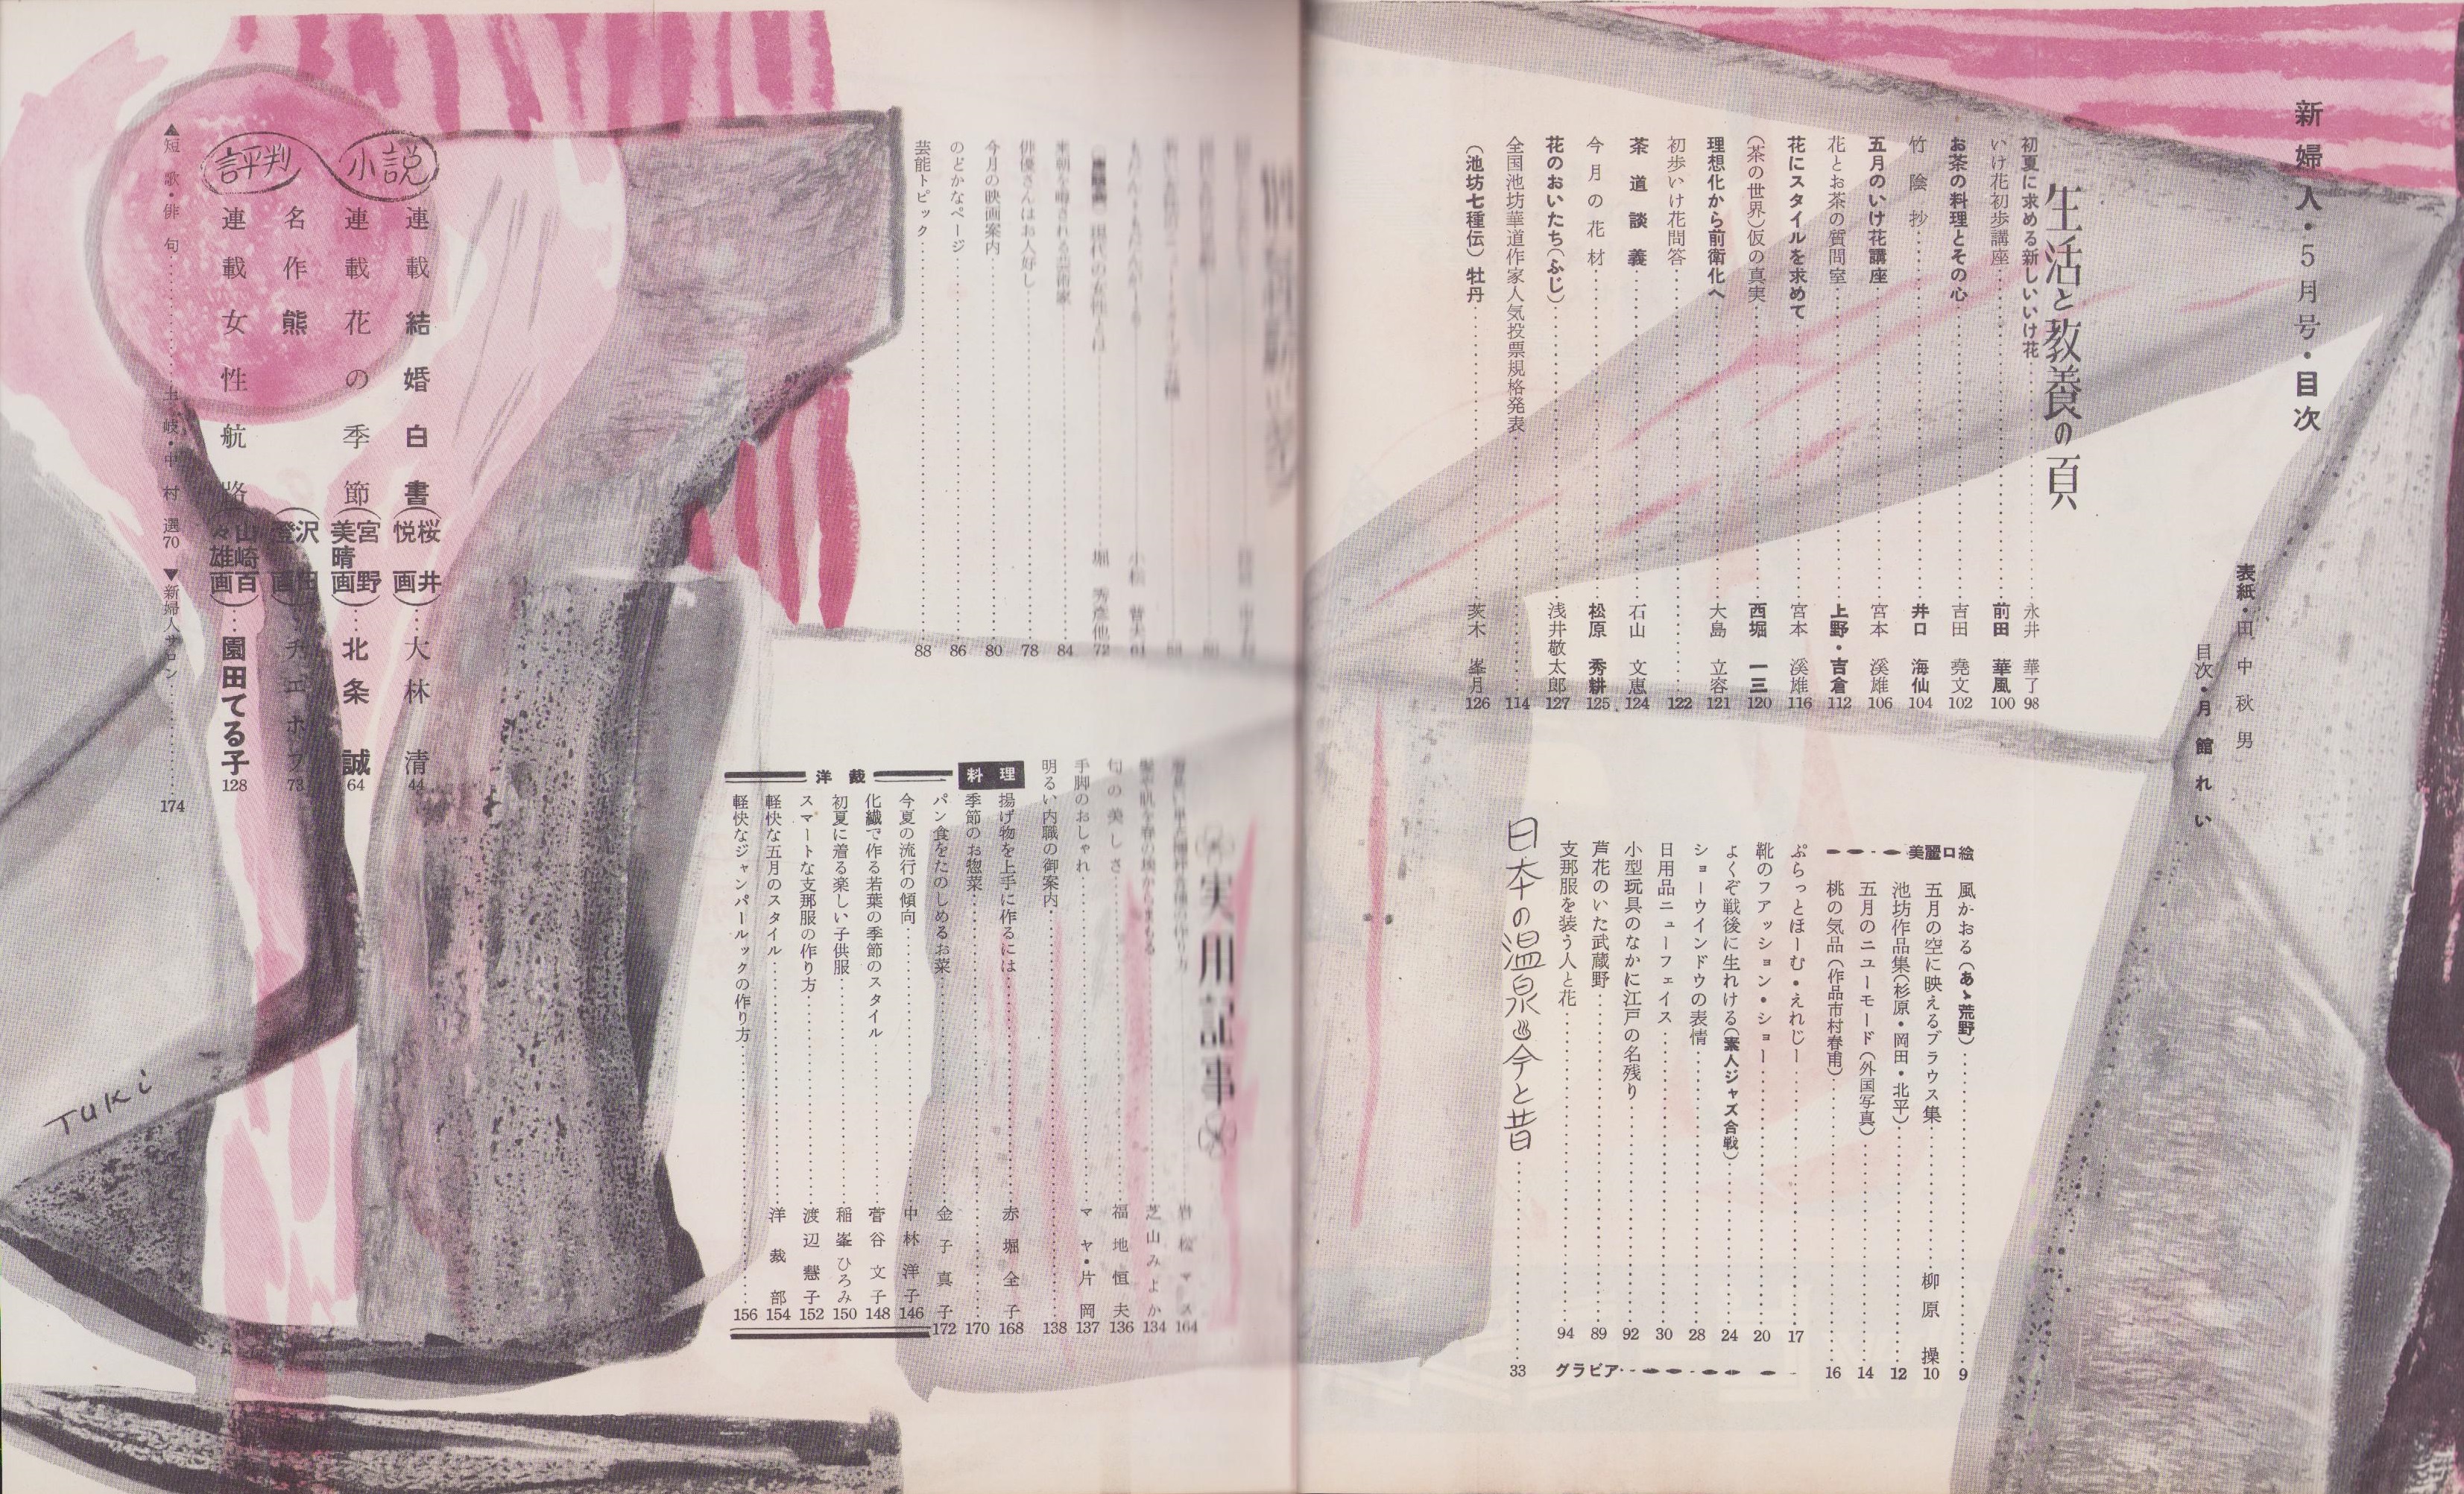 新婦人・5月号・目次
表紙・田中秋男
目次・月館れい
生活と教養の頁
初夏に求める新しいいけ花……永井華了 98
いけ花初歩講座……前田華風 100
お茶の料理とその心……吉田堯文 102
竹陰抄……井口海仙 104
五月のいけ花講座……宮本渓雄 106
花とお茶の質問室……上野・吉倉 112
花にスタイルを求めて……宮本渓雄 116
(茶の世界)仮の真実……西堀一三 120
理想化から前衛化へ……大島立容 121
初歩いけ花問答……122
茶道談義……石山文恵 124
今月の花材……松原秀耕 125
花のおいたち(ふじ)……浅井敬太郎 127
全国池坊華道作家人気投票規格発表……114
(池坊七種伝)牡丹……茨木峯月 126
美麗口絵
風かおる(あゝ荒野)……9
五月の空に映えるブラウス集……柳原操 10
池坊作品集(杉原・岡田・北平)……12
五月のニューモード(外国写真)……14
桃の気品(作品市村春甫)……16
ぷらっとほーむ・えれじー……17
靴のフアッション・ショー……20
よくぞ戦後に生れける(素人ジャズ合戦)……24
ショーウインドウの表情……28
日用品ニューフェイス……30
小型玩具のなかに江戸の名残り……92
芦花のいた武蔵野……89
支那服を装う人と花……94
グラビア
日本の温泉♨今と昔……33
堀 秀彦他 72
来朝を噂される芸術家……84
俳優さんはお人好し……78
今月の映画案内……80
のどかなページ……86
芸能トピック……88
実用記事
岩松マス 164
芝山みよか 134
旬の美しさ……福地恒夫 136
手脚のおしゃれ……マヤ・片岡 137
明るい内職の御案内……138
料理
揚げ物を上手に作るには……赤堀全子 168
季節のお惣菜……170
パン食をたのしめるお菜……金子真子 172
洋裁
今夏の流行の傾向……中林洋子 146
化繊で作る若葉の季節のスタイル……菅谷文子 148
初夏に着る楽しい子供服……稲峯ひろみ 150
スマートな支那服の作り方……渡辺慧子 152
軽快な五月のスタイル……洋裁部 154
軽快なジャンパールックの作り方……156
評判小説
連載結婚白書(桜井悦画)……大林清 44
連載花の季節(宮野美晴画)……北条誠 64
名作熊(沢田澄画)……チエホフ 73
連載女性航路(山崎百々雄画)……園田てる子 128
▲短歌・俳句……土岐・中村選 70
▼新婦人サロン……174
TUKi